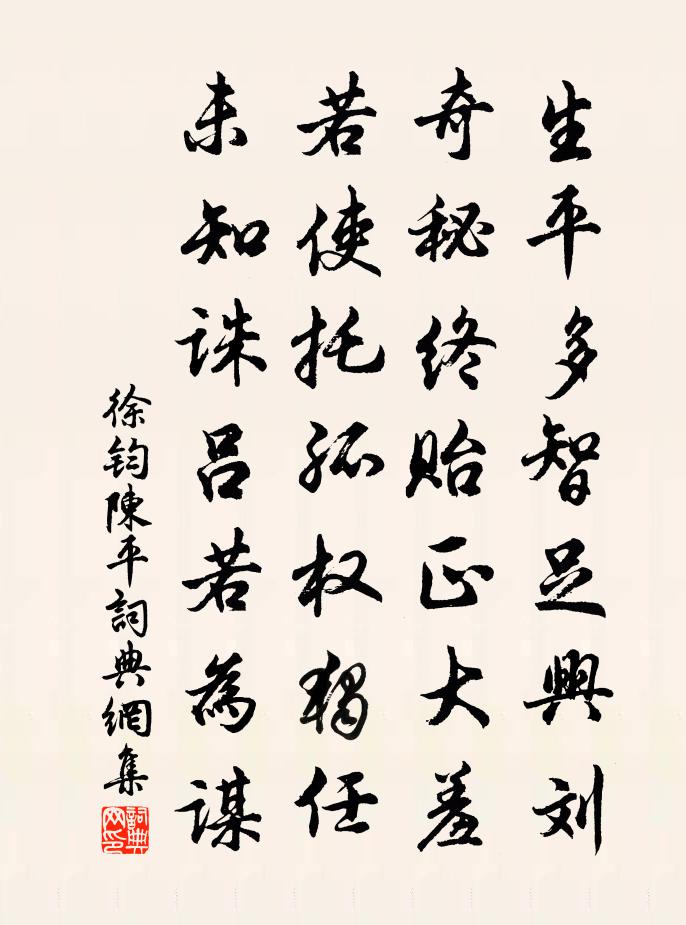 生平多智足興刘
奇秘终贻正大羞
若使托孤权独任
未知诛吕若為谋
徐鈞陳平詞典網集
詞典网印